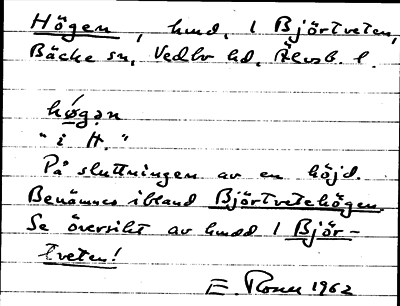 Högen, hmd, 1 Björtveten,
Bäcke sn, Vedbo hd, Älvsb. l.
hø̀gən
"i H."
På sluttningen av en höjd.
Benämnes ibland Björtvetehögen.
Se översikt av hmd 1 Björ-
tveten!
E 1962